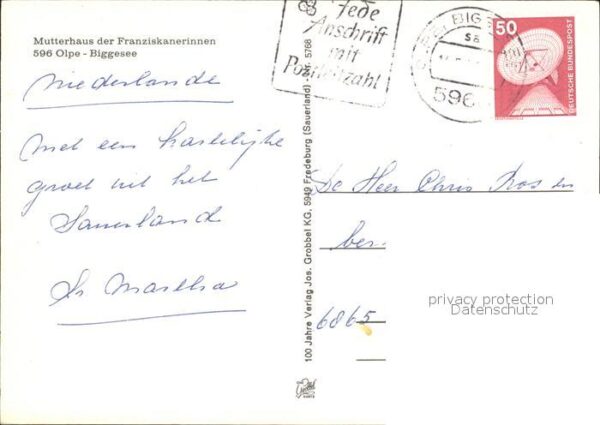 Mutterhaus der Franziskanerinnen
596 Olpe - Biggesee
Niederlande
Met een hartelijke
groet uit het
Sauerland
Sr Martha
100 Jahre Verlag Jos. Grobbel KG, 5949 Fredeburg (Sauerland)
Jede
Anschrift
mit
Postleitzahl
BIGGE
596
50
DEUTSCHE BUNDESPOST
De Heer Chris Ros en
6865
privacy protection
Datenschutz